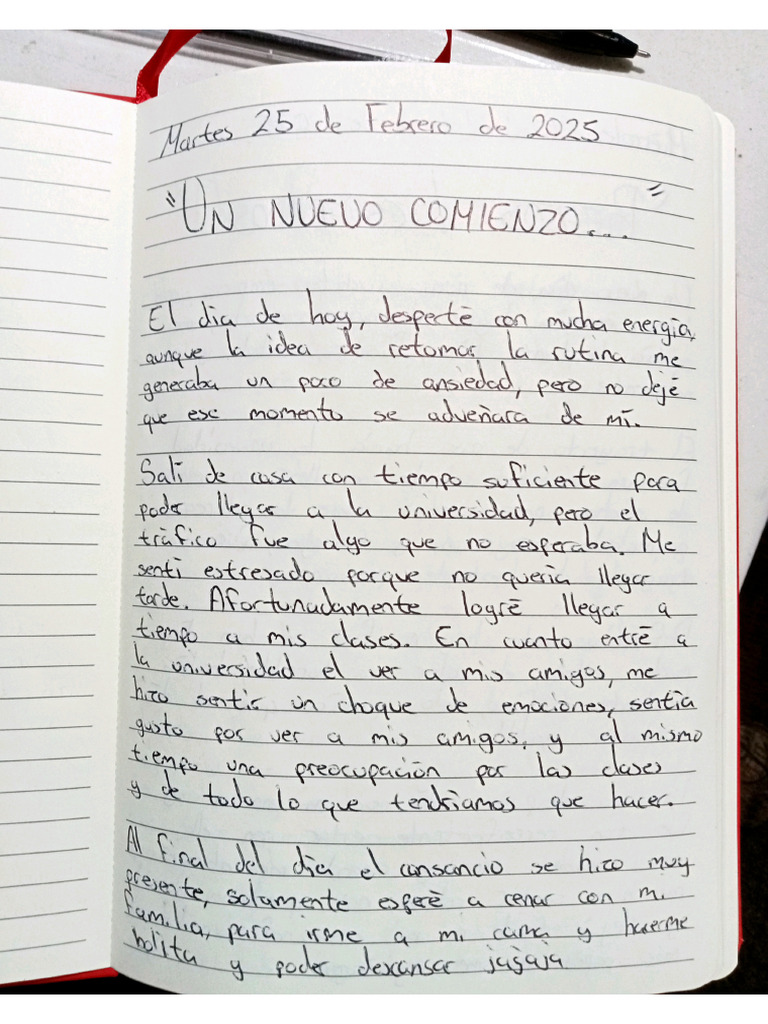 Martes 25 de Febrero de 2025
"UN NUEVO COMIENZO..."
El dia de hoy, desperté con mucha energía,
aunque la idea de retomar la rutina me
generaba un poco de ansiedad, pero no dejé
que ese momento se adueñara de mí.
Salí de casa con tiempo suficiente para
poder llegar a la universidad, pero el
tráfico fue algo que no esperaba. Me
sentí estresado porque no quería llegar
tarde. Afortunadamente logré llegar a
tiempo a mis clases. En cuanto entré a
la universidad el ver a mis amigos, me
hizo sentir un choque de emociones, sentía
gusto por ver a mis amigos, y al mismo
tiempo una preocupación por las clases
y de todo lo que tendríamos que hacer.
Al final del día el cansancio se hizo muy
presente, solamente esperé a cenar con mi
familia, para irme a mi cama y hacerme
bolita y poder descansar jajaja